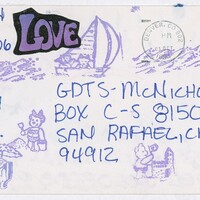 06
LOVE
GDTS-McNICHO
BOX C-S 8150
SAN RAFAEL, C
94912